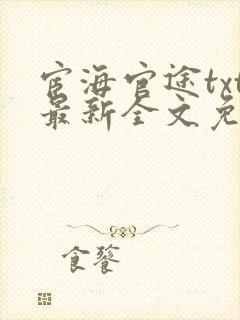 宦海官途txt
最新全文免
食饕